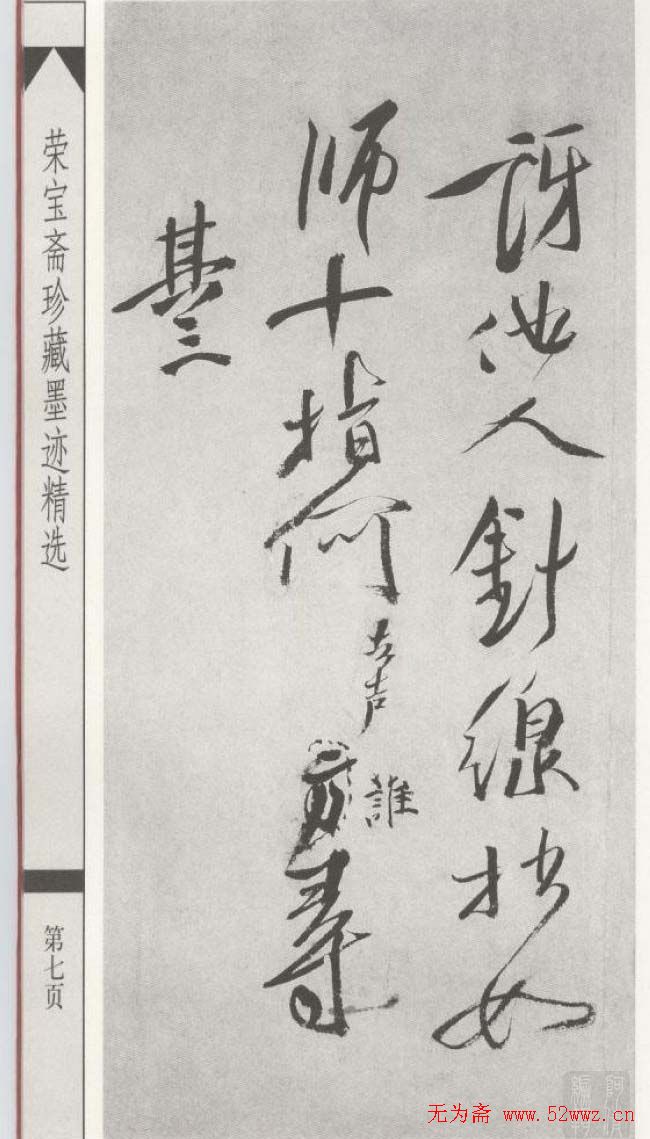 訝他人針線拙如
师十指何
誰
其三
荣宝斋珍藏墨迹精选
第七页
无为斋 www.52wwz.cn